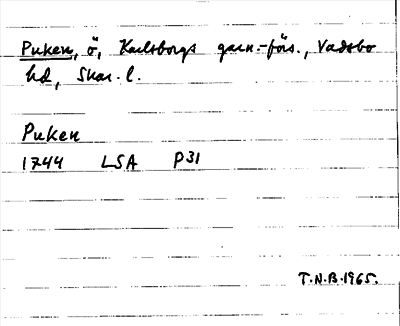 Puken, ö, Karlsborgs garn.-förs., Vadsbo
hd, Skar. l.
Puken
1744 LSA P31
T.N.B. 1965.